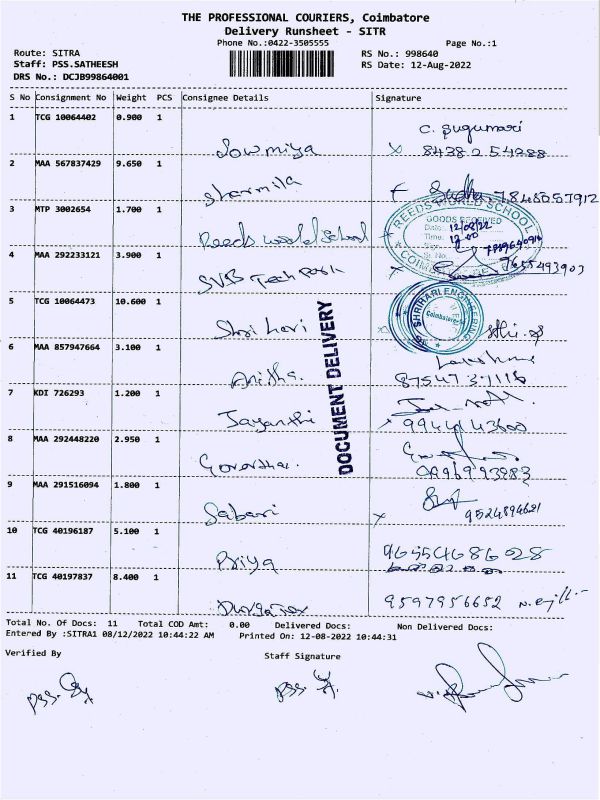 THE PROFESSIONAL COURIERS, Coimbatore
Delivery Runsheet - SITR
Phone No.:0422-3505555
Page No.:1
Route: SITRA
RS No.: 998640
Staff: PSS.SATHEESH
RS Date: 12-Aug-2022
DRS No.: DCJB99864001
S No Consignment No Weight PCS Consignee Details Signature
1 TCG 10064402 0.900 1
C. Sugumari
Sowmiya
2 MAA 567837429 9.650 1
Sharmila
3 MTP 3002654 1.700 1
REEDS WORLD SCHOOL
GOODS RECEIVED
Date: 12/08/22
Time: 12.00
Reeds world School
4 MAA 292233121 3.900 1
SVB Tech Park 7655493903
5 TCG 10064473 10.600 1
SHRIHARI ENGINEERING
Coimbatore
Shri hari
DOCUMENT DELIVERY
6 MAA 857947664 3.100 1
Anitha
7 KDI 726293 1.200 1
Jayanthi
8 MAA 292448220 2.950 1
9 MAA 291516094 1.800 1
Sabari 9524894621
10 TCG 40196187 5.100 1
Priya 9655468628
11 TCG 40197837 8.400 1
9597956652
Total No. Of Docs: 11 Total COD Amt: 0.00 Delivered Docs: Non Delivered Docs:
Entered By :SITRA1 08/12/2022 10:44:22 AM Printed On: 12-08-2022 10:44:31
Verified By Staff Signature